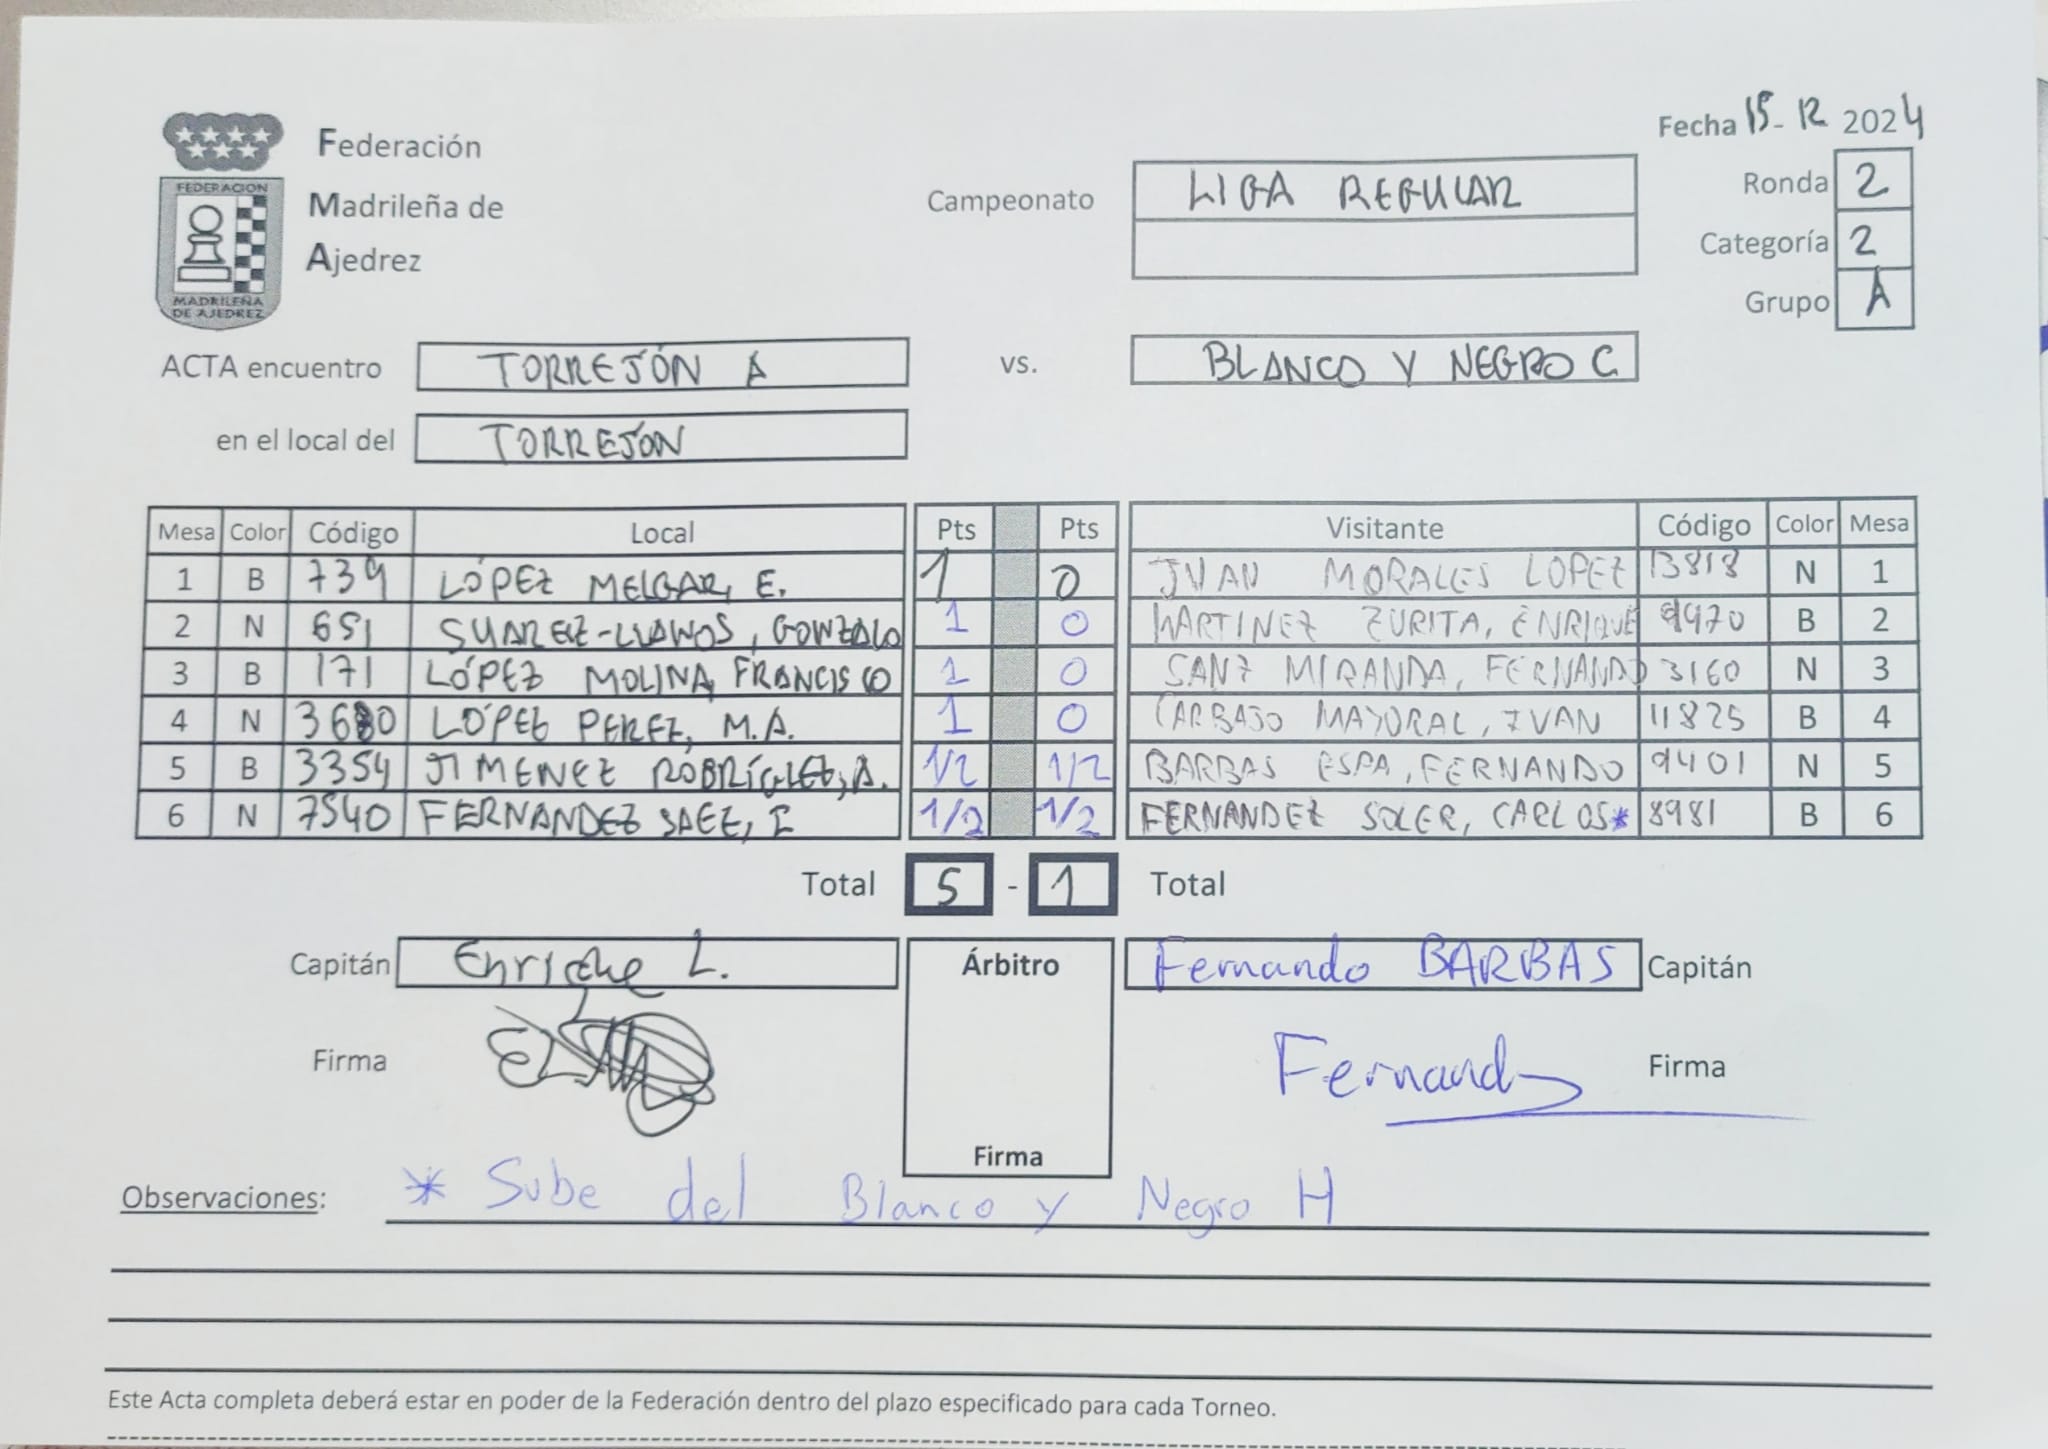 Fecha 15-12 2024
Federación
Madrileña de
Ajedrez
FEDERACION
MADRILEÑA
DE AJEDREZ
Campeonato LIGA REGULAR
Ronda 2
Categoría 2
Grupo A
ACTA encuentro TORREJÓN A vs. BLANCO Y NEGRO C
en el local del TORREJÓN
Mesa Color Código Local Pts Pts Visitante Código Color Mesa
1 B 739 LÓPEZ MELGAR, E. 1 0 JUAN MORALES LOPEZ 13818 N 1
2 N 651 SUAREZ-LLANOS, GONZALO 1 0 MARTINEZ ZURITA, ENRIQUE 9970 B 2
3 B 171 LÓPEZ MOLINA, FRANCISCO 1 0 SANZ MIRANDA, FERNANDO 3160 N 3
4 N 3680 LÓPEZ PEREZ, M.A. 1 0 CARBAJO MAYORAL, IVAN 11825 B 4
5 B 3354 JIMENEZ RODRÍGUEZ, A. 1/2 1/2 BARBAS ESPA, FERNANDO 9401 N 5
6 N 7540 FERNANDEZ SAEZ, I 1/2 1/2 FERNANDEZ SOLER, CARLOS* 8981 B 6
Total 5 - 1 Total
Capitán Enrique L. Árbitro Fernando BARBAS Capitán
Firma Fernando Firma
Firma
Observaciones: * Sube del Blanco y Negro H
Este Acta completa deberá estar en poder de la Federación dentro del plazo especificado para cada Torneo.